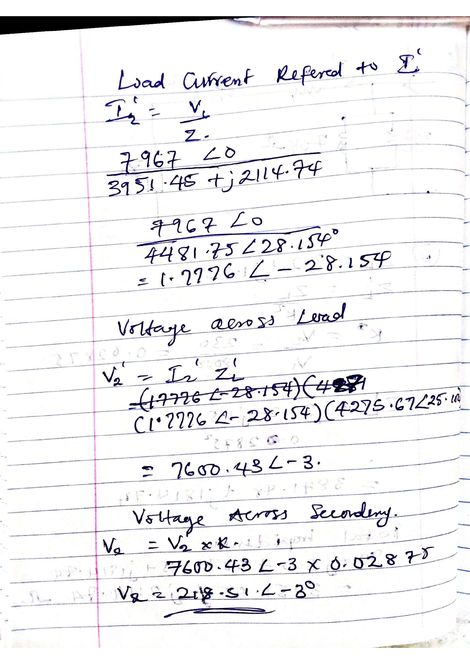 Load Current Refered to I'
I₂' = V₁
Z.
7967 ∠0
3951.45 + j2114.74
7967 ∠0
4481.75∠28.154°
= 1.7776 ∠-28.154
Voltage across Load
V₂' = I₂' ZL'
=(17776 ∠-28.154)(4281
(1.7776 ∠-28.154)(4275.67∠25.1
= 7600.43∠-3.
Voltage Across Secondeny.
V₂ = V₂' x k.
7600.43∠-3 x 0.02875
V₂ = 218.51.∠-3°